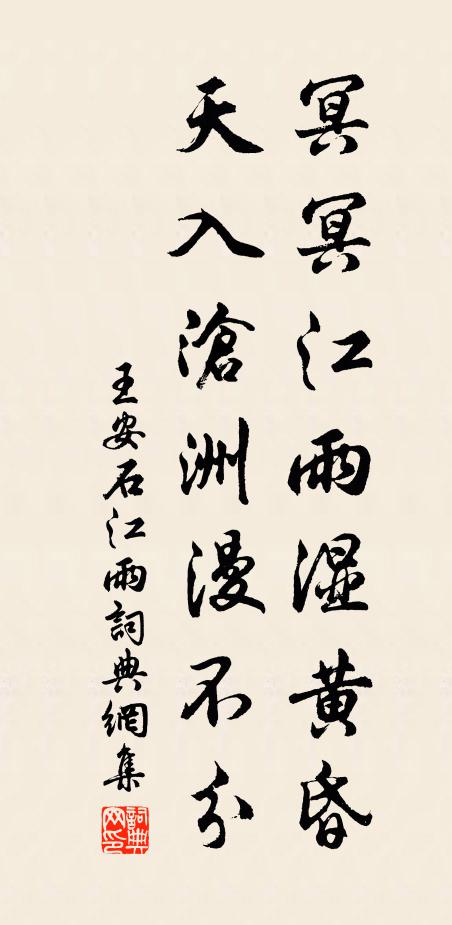 冥冥江雨湿黄昏
天入滄洲漫不分
王安石江雨詞典網集
詞典网印